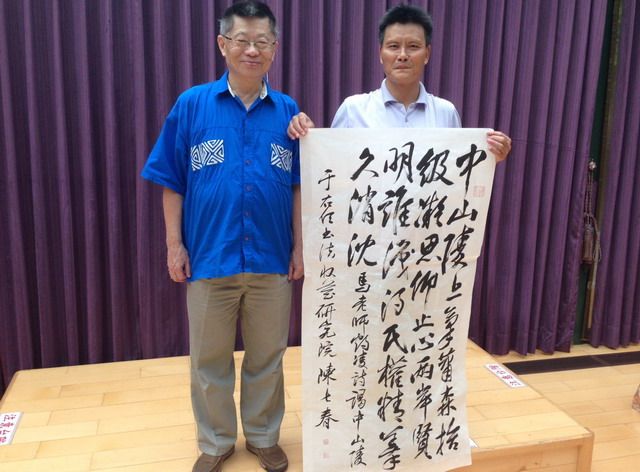 中山陵上草蕭森拾
級凝思仰止心两岸賢
明誰得民權精義
久消沈 馬老師鶴凌詩謁中山陵
于右任书法收藏研究院 陳七春